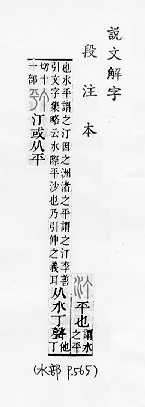 說文解字
段注本
汀 平也 謂水之平
也水平謂之汀因之洲渚之平謂之汀李善
引文字集略云水際平沙也乃引伸之義耳从水丁聲他
切十
一部 汀或从平
(水部 p.565)